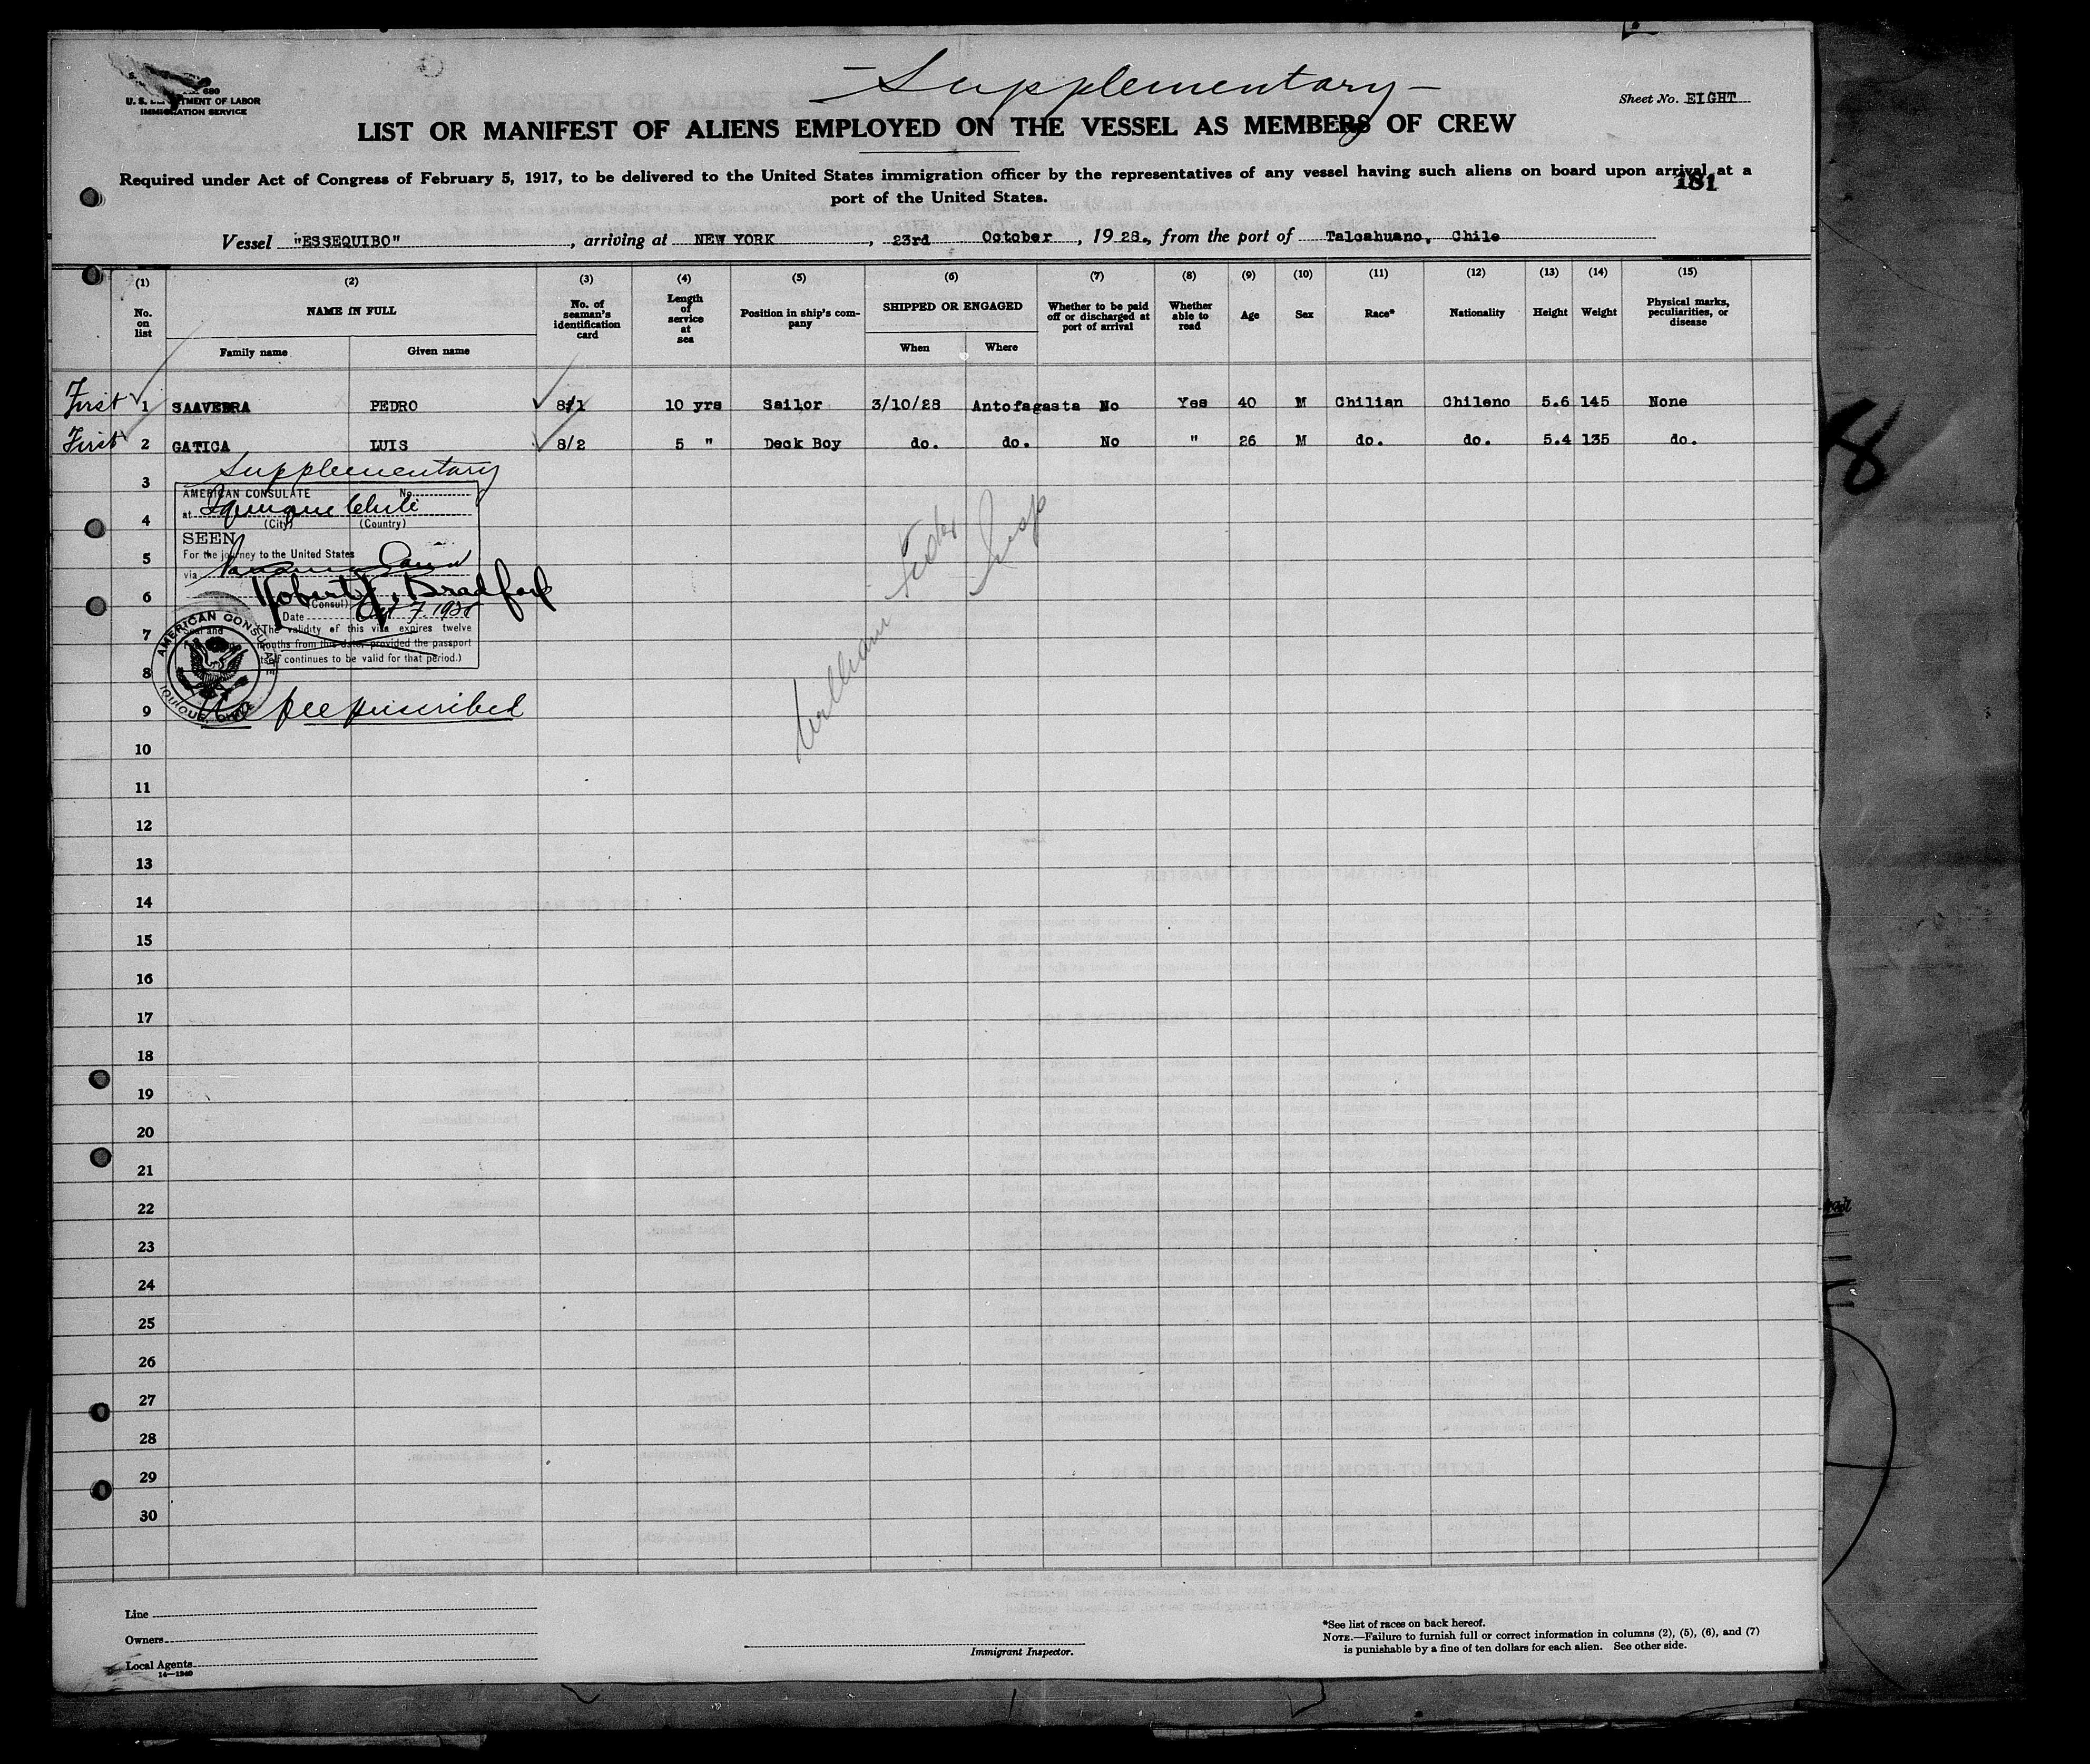 Supplementary
680
U. S. DEPARTMENT OF LABOR
IMMIGRATION SERVICE
Sheet No. EIGHT
LIST OR MANIFEST OF ALIENS EMPLOYED ON THE VESSEL AS MEMBERS OF CREW
Required under Act of Congress of February 5, 1917, to be delivered to the United States immigration officer by the representatives of any vessel having such aliens on board upon arrival at a
port of the United States.
181
Vessel "ESSEQUIBO", arriving at NEW YORK, 23rd October, 1928., from the port of Talcahuano, Chile
(1) (2) (3) (4) (5) (6) (7) (8) (9) (10) (11) (12) (13) (14) (15)
No. on list NAME IN FULL No. of seaman's identification card Length of service at sea Position in ship's company SHIPPED OR ENGAGED Whether to be paid off or discharged at port of arrival Whether able to read Age Sex Race* Nationality Height Weight Physical marks, peculiarities, or disease
Family name Given name When Where
First 1 SAAVEDRA PEDRO 8/1 10 yrs Sailor 3/10/28 Antofagasta No Yes 40 M Chilian Chileno 5.6 145 None
First 2 GATICA LUIS 8/2 5 " Deck Boy do. do. No " 26 M do. do. 5.4 135 do.
Supplementary
3
AMERICAN CONSULATE No.
at Iquique Chile
4
(City) (Country)
SEEN
5
For the journey to the United States
via Panama Canal
6
Robert F. Bradford
(Consul)
Date Oct 7, 1928
7
Seal and (The validity of this visa expires twelve
months from this date, provided the passport
itself continues to be valid for that period.)
8
AMERICAN CONSULATE
IQUIQUE, CHILE
No fee prescribed
9
William
Insp
10
11
12
13
14
15
16
17
18
19
20
21
22
23
24
25
26
27
28
29
30
8
Line
Owners
Local Agents
14—1240
Immigrant Inspector.
*See list of races on back hereof.
NOTE.—Failure to furnish full or correct information in columns (2), (5), (6), and (7)
is punishable by a fine of ten dollars for each alien. See other side.